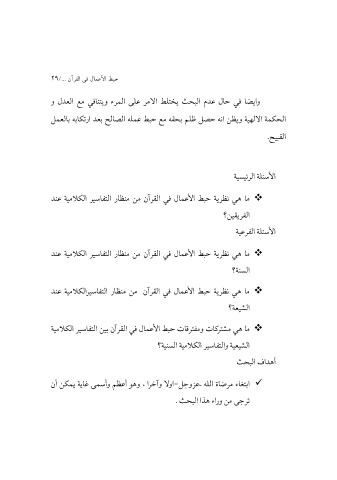 حبط الأعمال في القرآن .../٢٩
وايضا في حال عدم البحث يختلط الامر على المرء ويتنافي مع العدل و
الحكمة الالهية ويظن انه حصل ظلم بحقه مع حبط عمله الصالح بعد ارتكابه بالعمل
القبيح.
الأسئلة الرئيسية
❖ ما هي نظرية حبط الأعمال في القرآن من منظار التفاسير الكلامية عند
الفريقين؟
الأسئلة الفرعية
❖ ما هي نظرية حبط الأعمال في القرآن من منظار التفاسير الكلامية عند
السنة؟
❖ ما هي نظرية حبط الأعمال في القرآن من منظار التفاسيرالكلامية عند
الشيعة؟
❖ ما هي مشتركات ومفترقات حبط الأعمال في القرآن بين التفاسير الكلامية
الشيعية والتفاسير الكلامية السنية؟
أهداف البحث
✓ ابتغاء مرضاة الله عزوجل-اولا وآخرا ، وهو أعظم وأسمى غاية يمكن أن
ترجى من وراء هذا البحث .